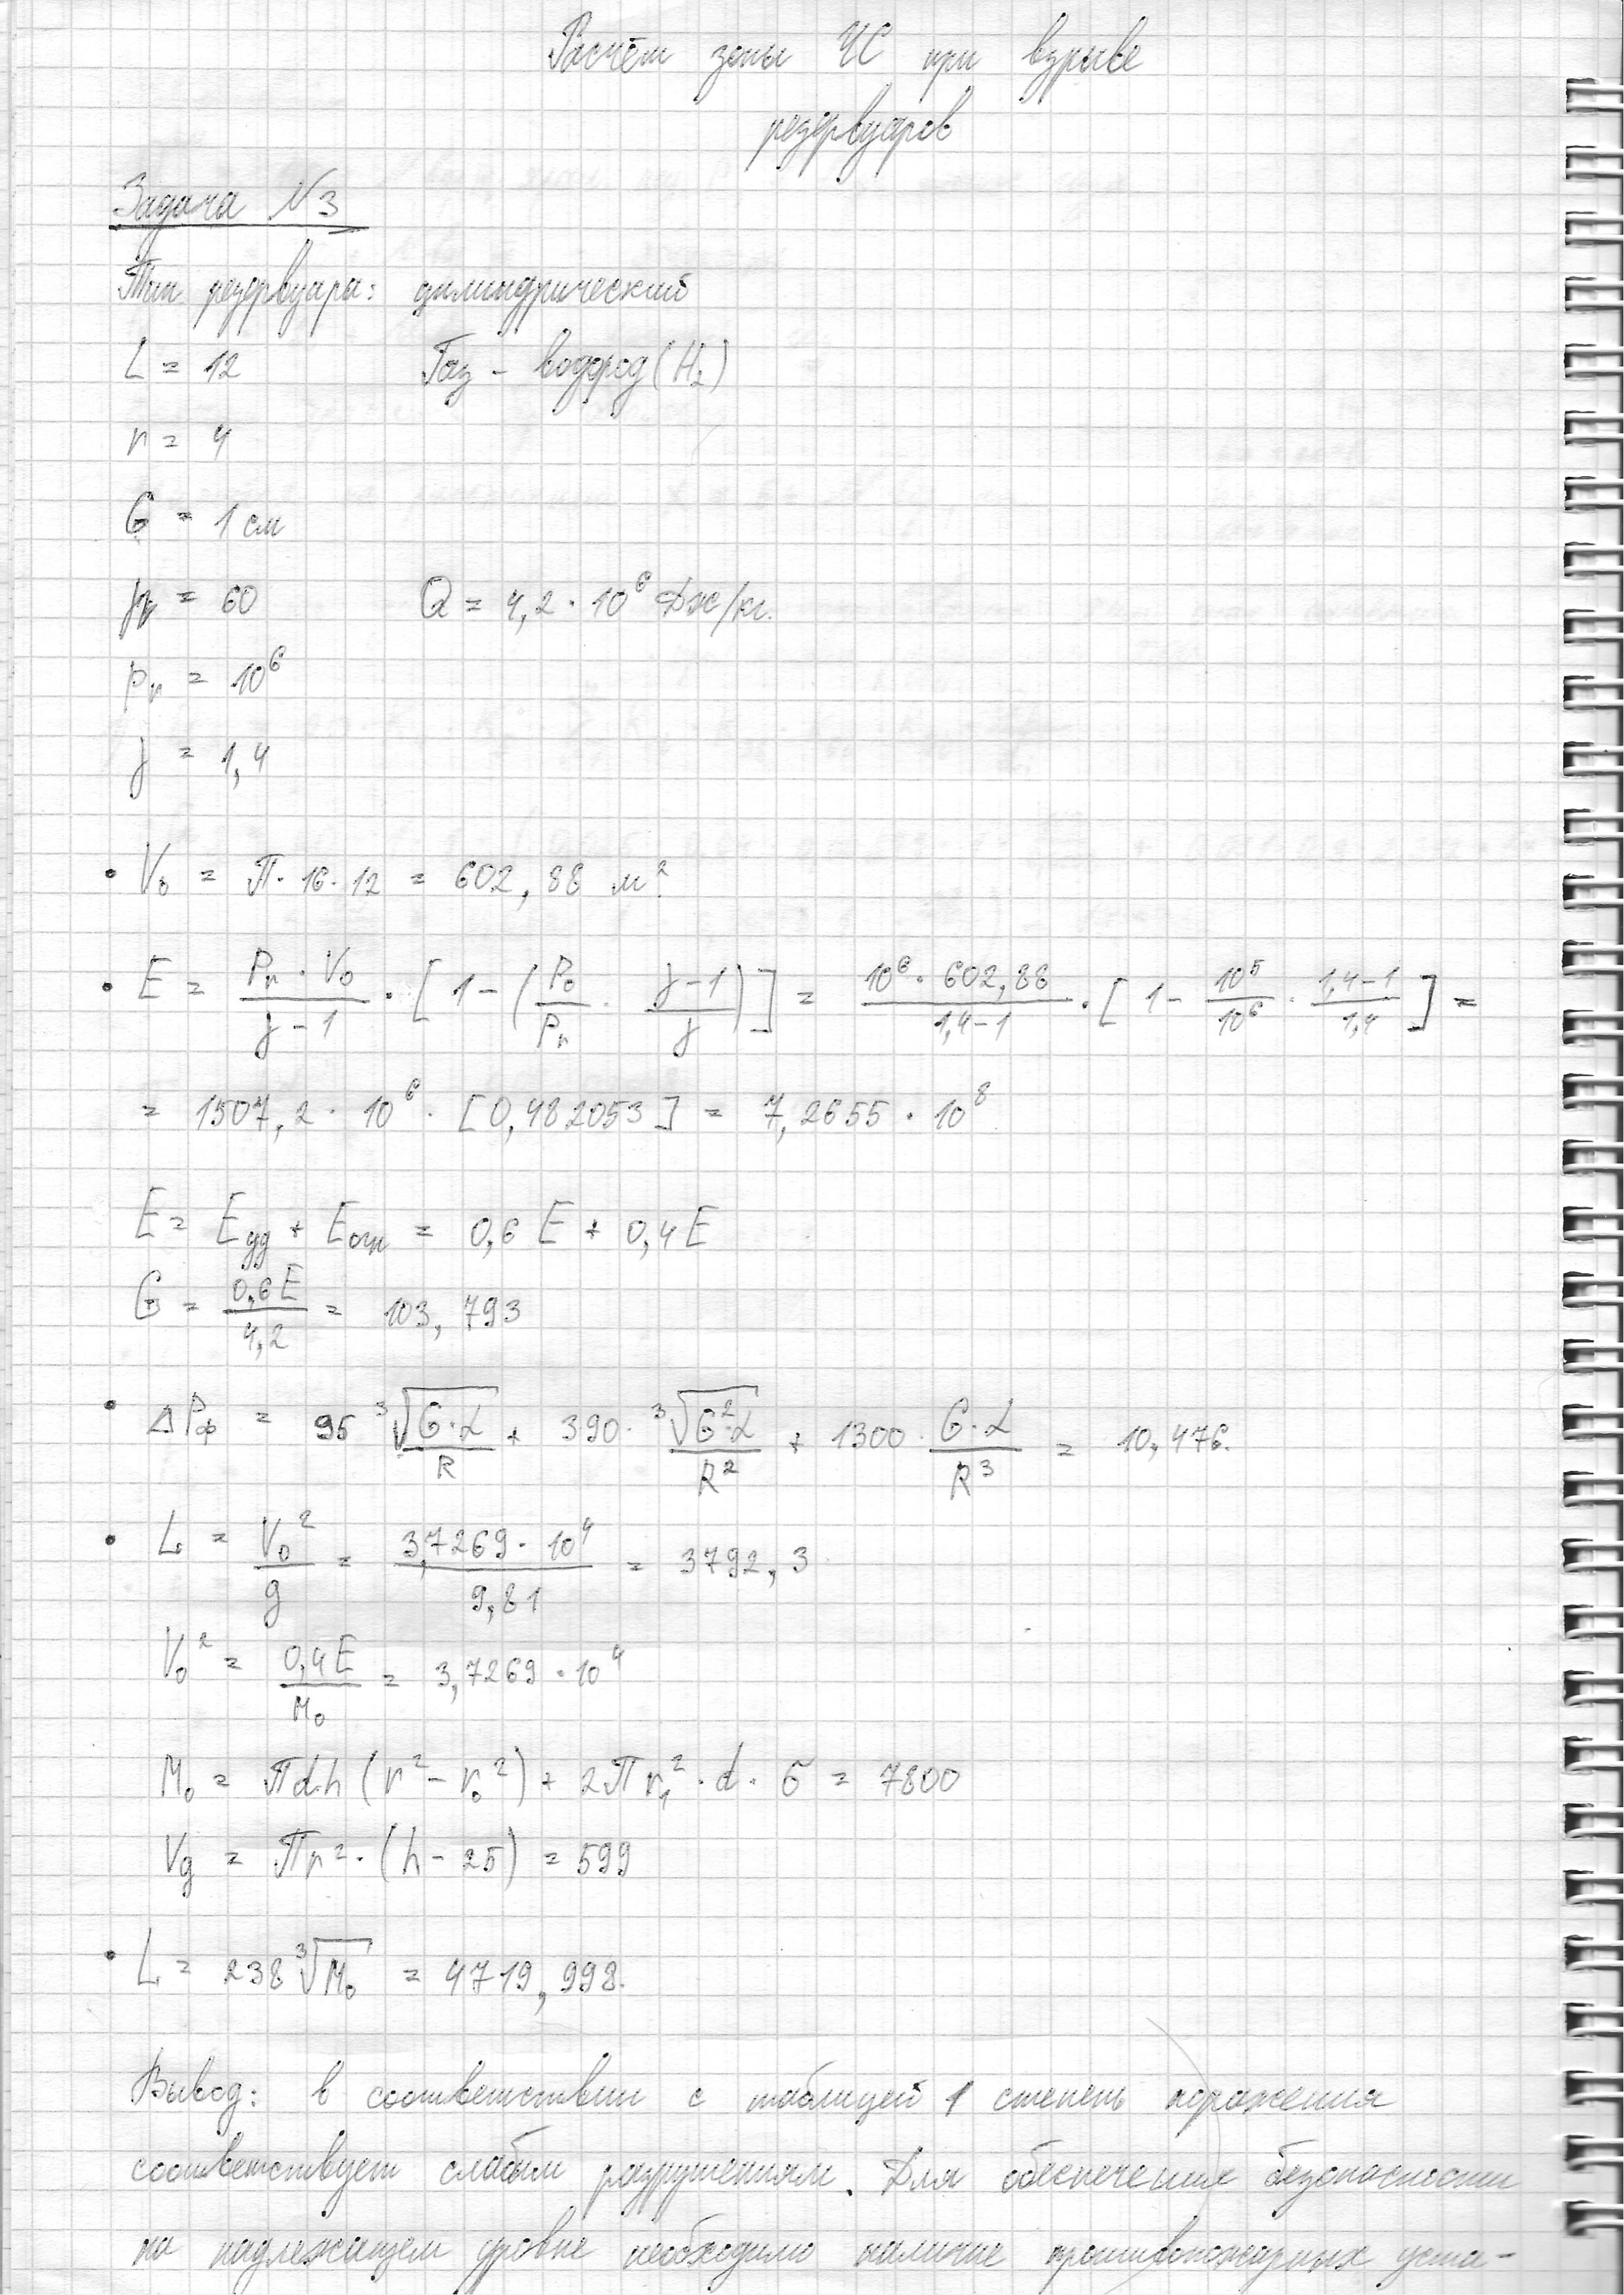 Расчёт зоны ЧС при взрыве
резервуаров
Задача №3
Тип резервуара: цилиндрический
L = 12 Газ - водород (H₂)
r = 4
G = 1 см
R = 60 Q = 4,2 · 10⁶ Дж/кг.
Pr = 10⁶
γ = 1,4
• V₀ = π · 16 · 12 = 602,88 м²
• E = (Pr · V₀)/(γ - 1) · [1 - (P₀/Pr · (γ-1)/γ)] = (10⁶ · 602,88)/(1,4-1) · [1 - 10⁵/10⁶ · (1,4-1)/1,4] =
= 1507,2 · 10⁶ · [0,482053] = 7,2655 · 10⁸
E = Eуд + Eоск = 0,6 E + 0,4 E
G = 0,6E/4,2 = 103,793
• ΔPф = 95 ∛(G·α)/R + 390 · ∛(G²·α)/R² + 1300 · (G·α)/R³ = 10,476.
• L₀ = V₀²/g = (3,7269 · 10⁴)/9,81 = 3792,3
V₀² = 0,4E/M₀ = 3,7269 · 10⁴
M₀ = πd·h (r² - r₀²) + 2πr₁² · d · σ = 7800
Vg = πr² · (h - 25) = 599
• L = 238 ∛M₀ = 4719,998.
Вывод: в соответствии с таблицей 1 степень поражения
соответствует слабым разрушениям. Для обеспечения безопасности
на надлежащем уровне необходимо наличие противопожарных уста-